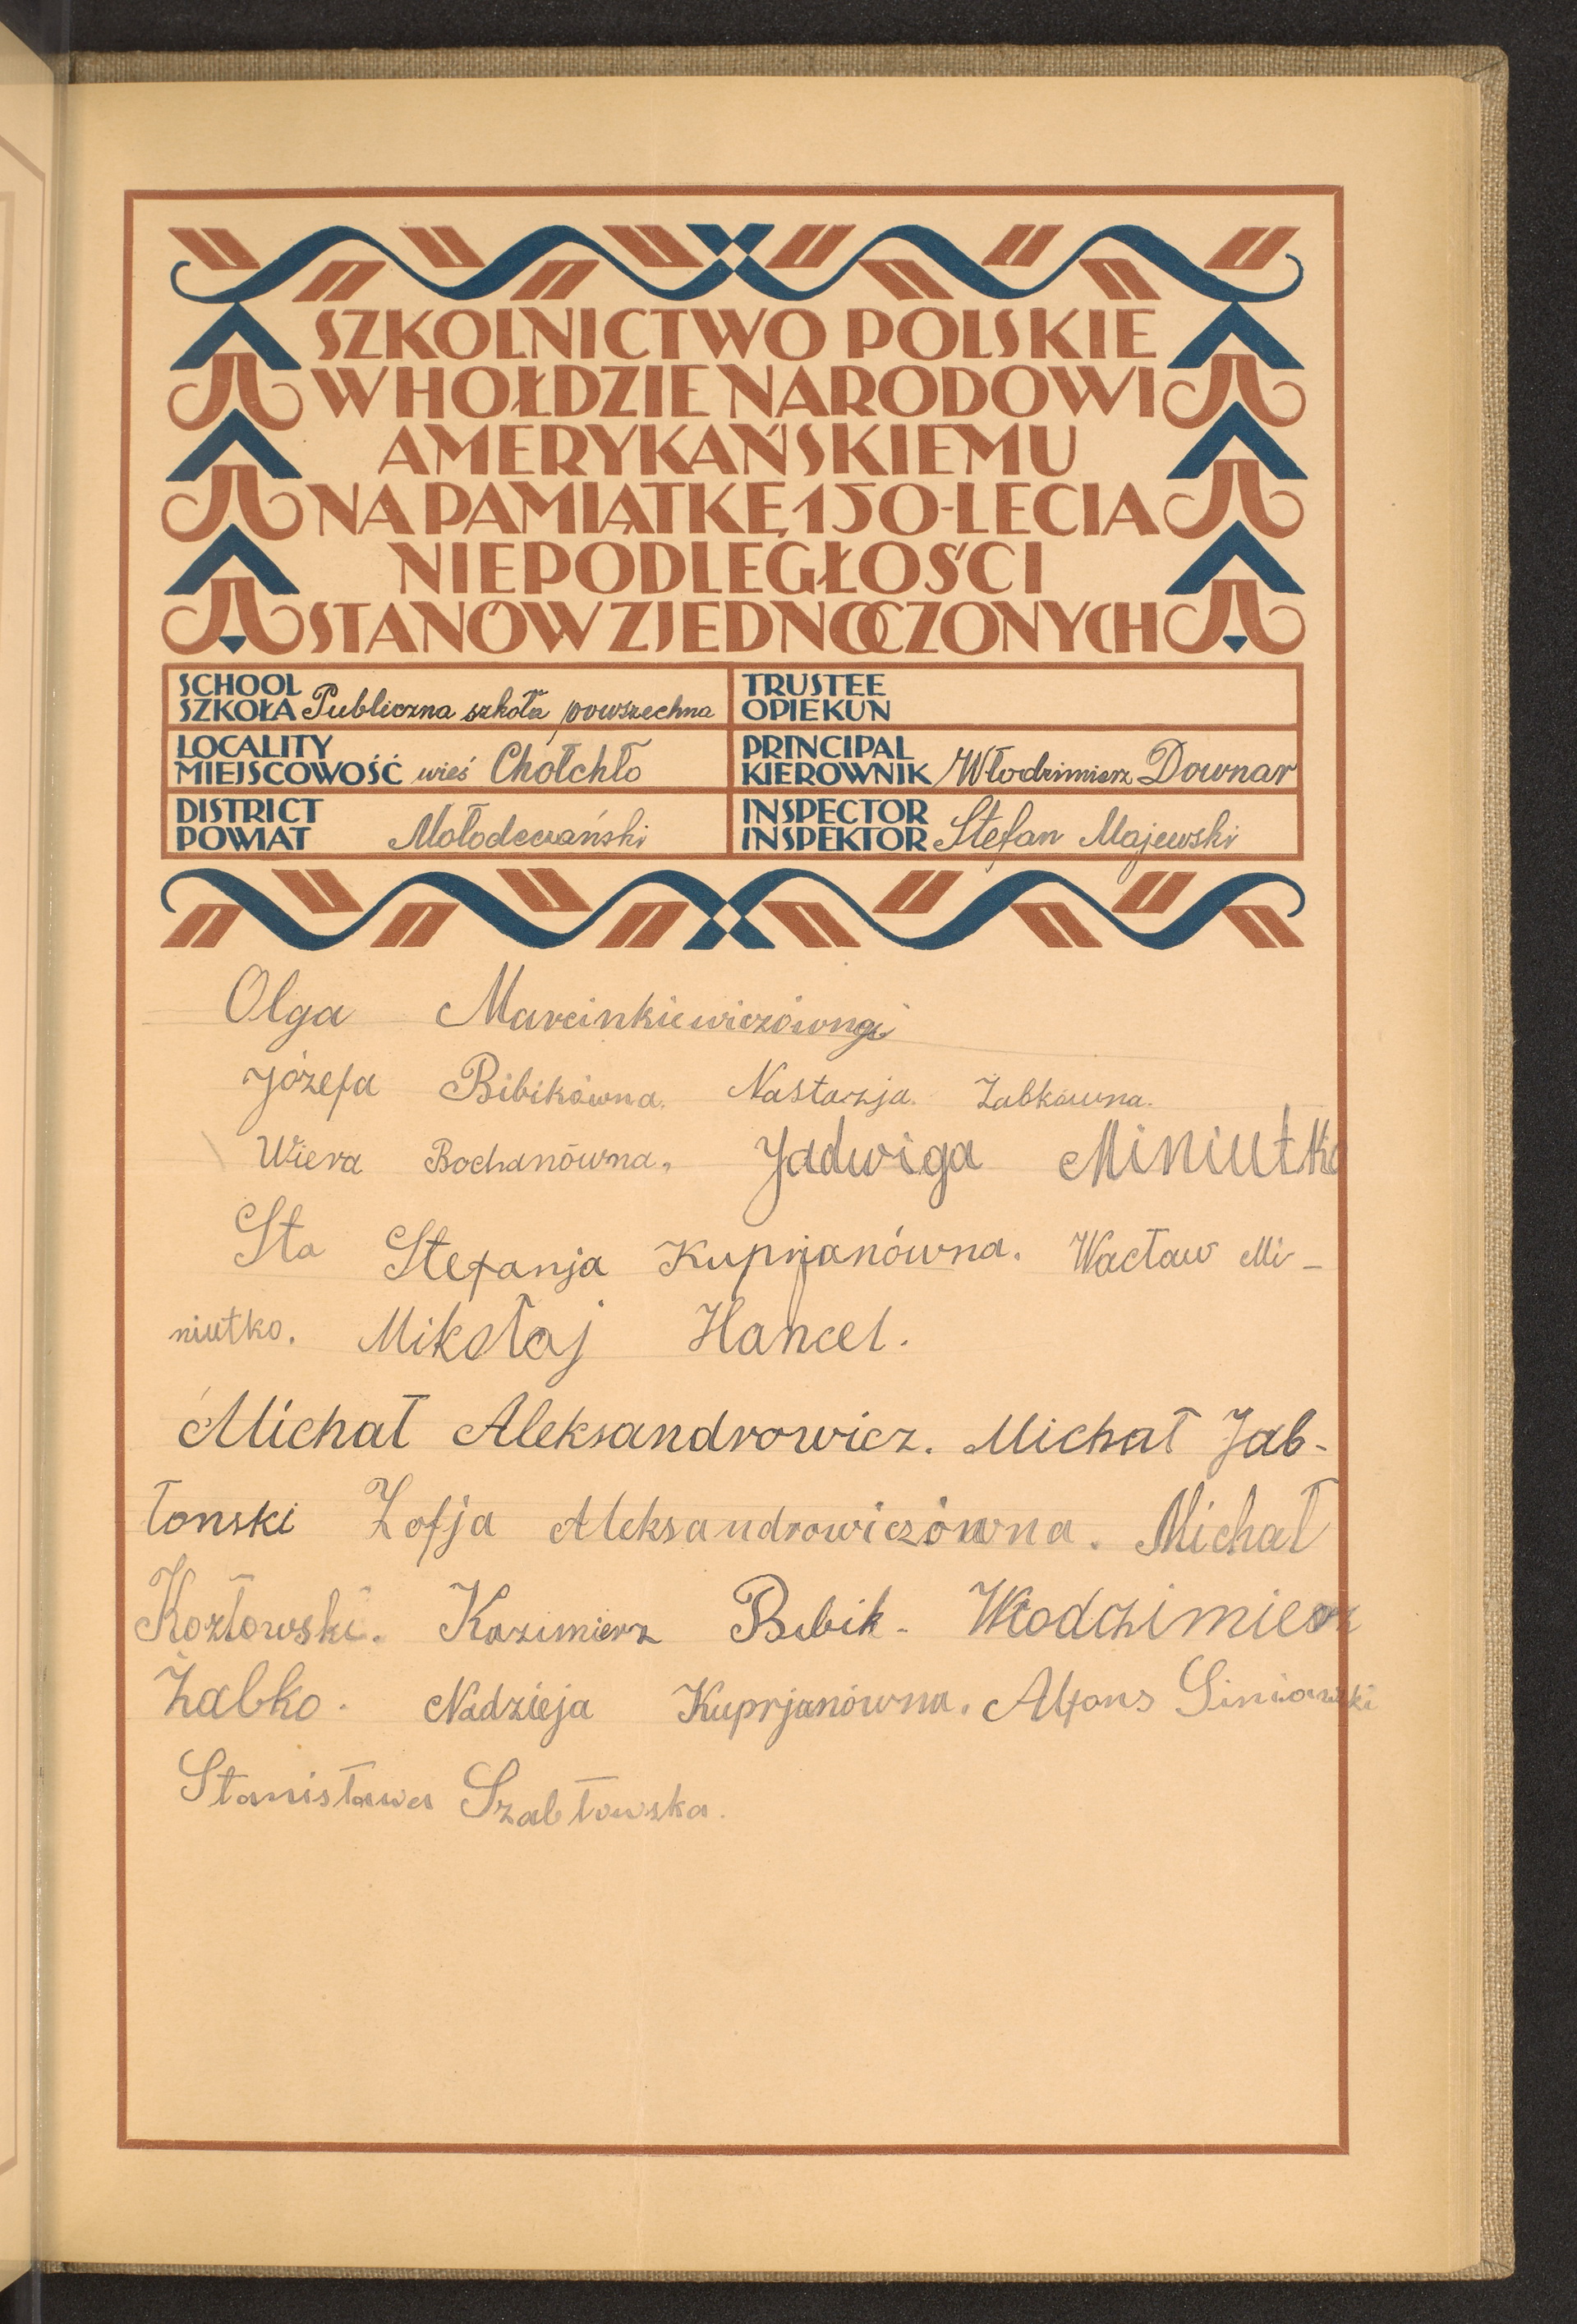 SZKOLNICTWO POLSKIE
W HOŁDZIE NARODOWI
AMERYKAŃSKIEMU
NA PAMIĄTKĘ 150-LECIA
NIEPODLEGŁOŚCI
STANÓW ZJEDNOCZONYCH
SCHOOL
SZKOŁA Publiczna szkoła powszechna
TRUSTEE
OPIEKUN
LOCALITY
MIEJSCOWOŚĆ wieś Chołchło
PRINCIPAL
KIEROWNIK Włodzimierz Downar
DISTRICT
POWIAT Mołodeczański
INSPECTOR
INSPEKTOR Stefan Majewski
Olga Marcinkiewiczówna
Józefa Bibikówna. Nastazja. Żabkówna.
Wiera Bochanówna, Jadwiga Miniutko
Sta Stefanja Kuprjanówna. Wacław Mi-
niutko. Mikołaj Hancel.
Michał Aleksandrowicz. Michał Jab-
łonski Zofja Aleksandrowiczówna. Michał
Kozłowski. Kazimierz Bibik. Włodzimierz
Żabko. Nadzieja Kuprjanówna. Alfons
Stanisława Szabłowska.